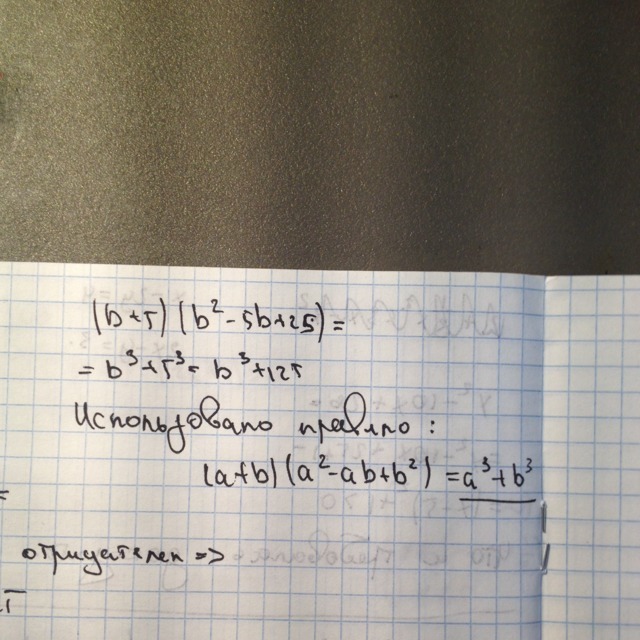 (b+5)(b²-5b+25)=
=b³+5³=b³+125
Использовано правило:
(a+b)(a²-ab+b²)=a³+b³
=
отрицателен =>